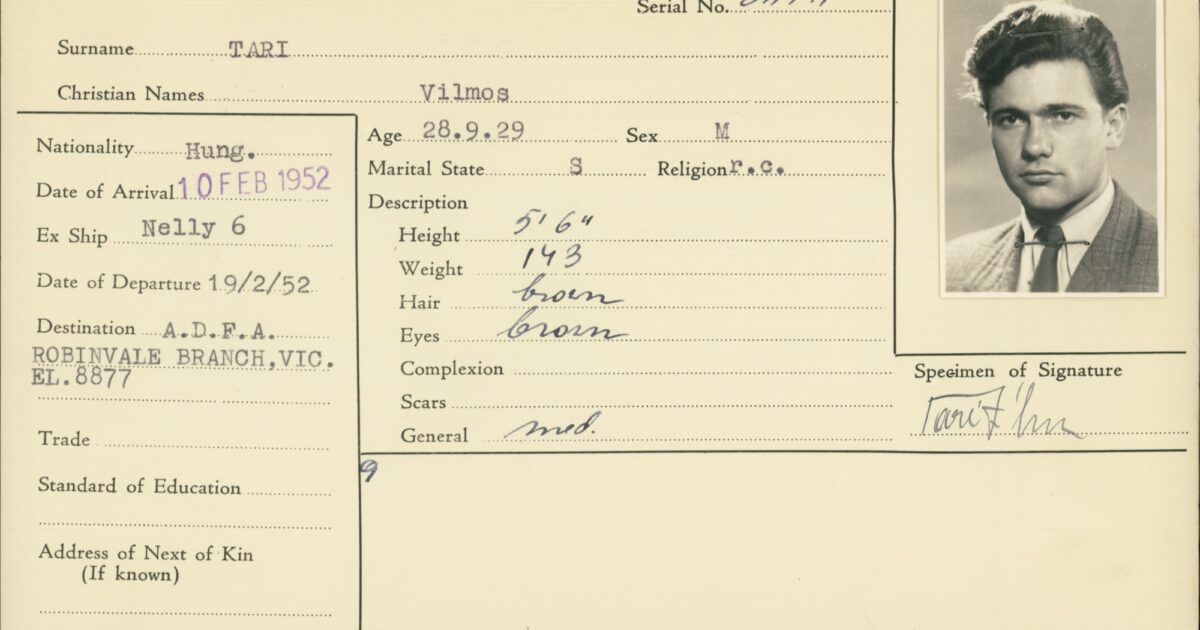 Serial No.
Surname TARI
Christian Names Vilmos
Nationality Hung.
Date of Arrival 10 FEB 1952
Ex Ship Nelly 6
Date of Departure 19/2/52
Destination A.D.F.A.
ROBINVALE BRANCH,VIC.
EL.8877
Trade
Standard of Education
Address of Next of Kin
(If known)
Age 28.9.29 Sex M
Marital State S Religion r.c.
Description
Height 5' 6"
Weight 143
Hair brown
Eyes brown
Complexion
Scars
General med.
9
Specimen of Signature
Tari